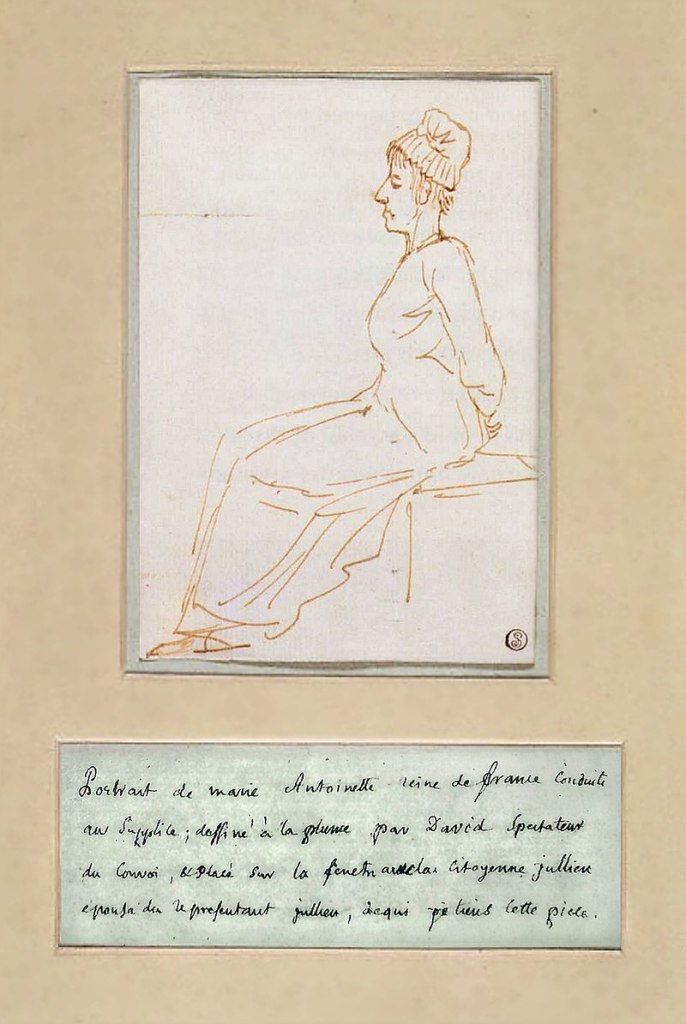 Portrait de marie Antoinette reine de france conduite
au Supplice; dessiné à la plume par David Spectateur
du Convoi, & placé sur la fenetre avec la Citoyenne jullien
epouse du representant jullien, de qui je tiens cette piece.